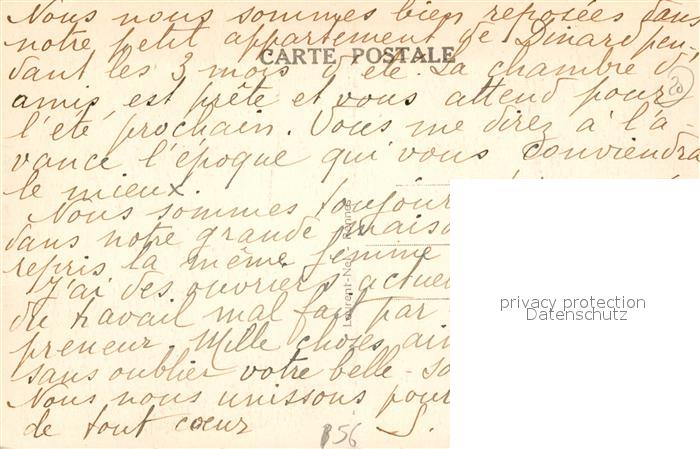 Nous nous sommes bien reposées dans
notre petit appartement de Dinard pen-
CARTE POSTALE
dant les 3 mois d'été. La chambre d'
amis est prête et vous attend pour
20
l'été prochain. Vous me direz à l'a-
vance l'époque qui vous conviendra
le mieux.
Nous sommes toujour
dans notre grande maiso
repris la même femme
J'ai des ouvriers actuel
du travail mal fait par
preneur. Mille choses ai
sans oublier votre belle-so
Nous nous unissons pour
de tout coeur
S.
Laurent-Nel - Rennes
privacy protection
Datenschutz
B56